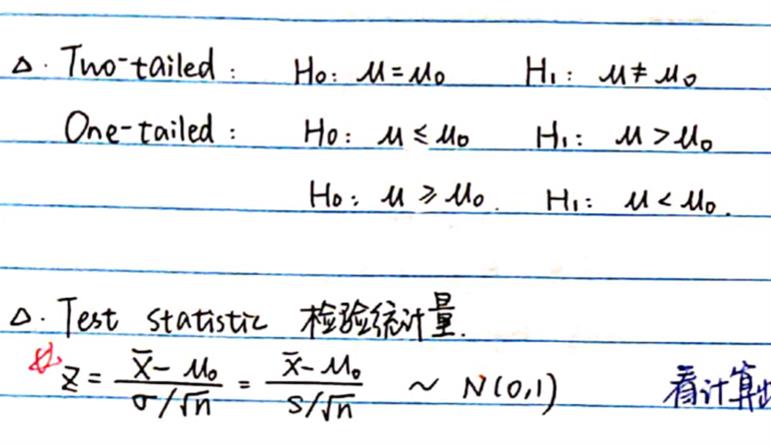 △. Two-tailed: H₀: μ=μ₀ H₁: μ≠μ₀
One-tailed: H₀: μ≤μ₀ H₁: μ>μ₀
H₀: μ≥μ₀. H₁: μ<μ₀.
△. Test statistic 检验统计量.
Z = (x̄-μ₀)/(σ/√n) = (x̄-μ₀)/(s/√n) ~ N(0,1) 看计算